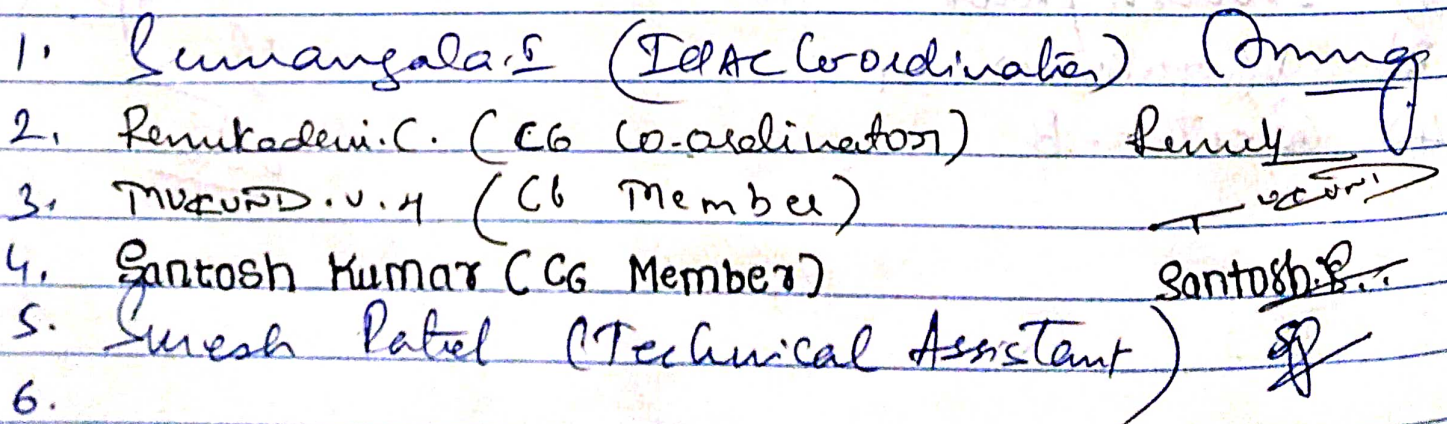 1. Sumangala.I (IQAC Co-ordinator)
2. Renukadevi.C. (CG Co-ordinator) Renuky
3. MUKUND.V.H (CG Member)
4. Santosh Kumar (CG Member) Santosh.S.
5. Suresh Patil (Technical Assistant)
6.